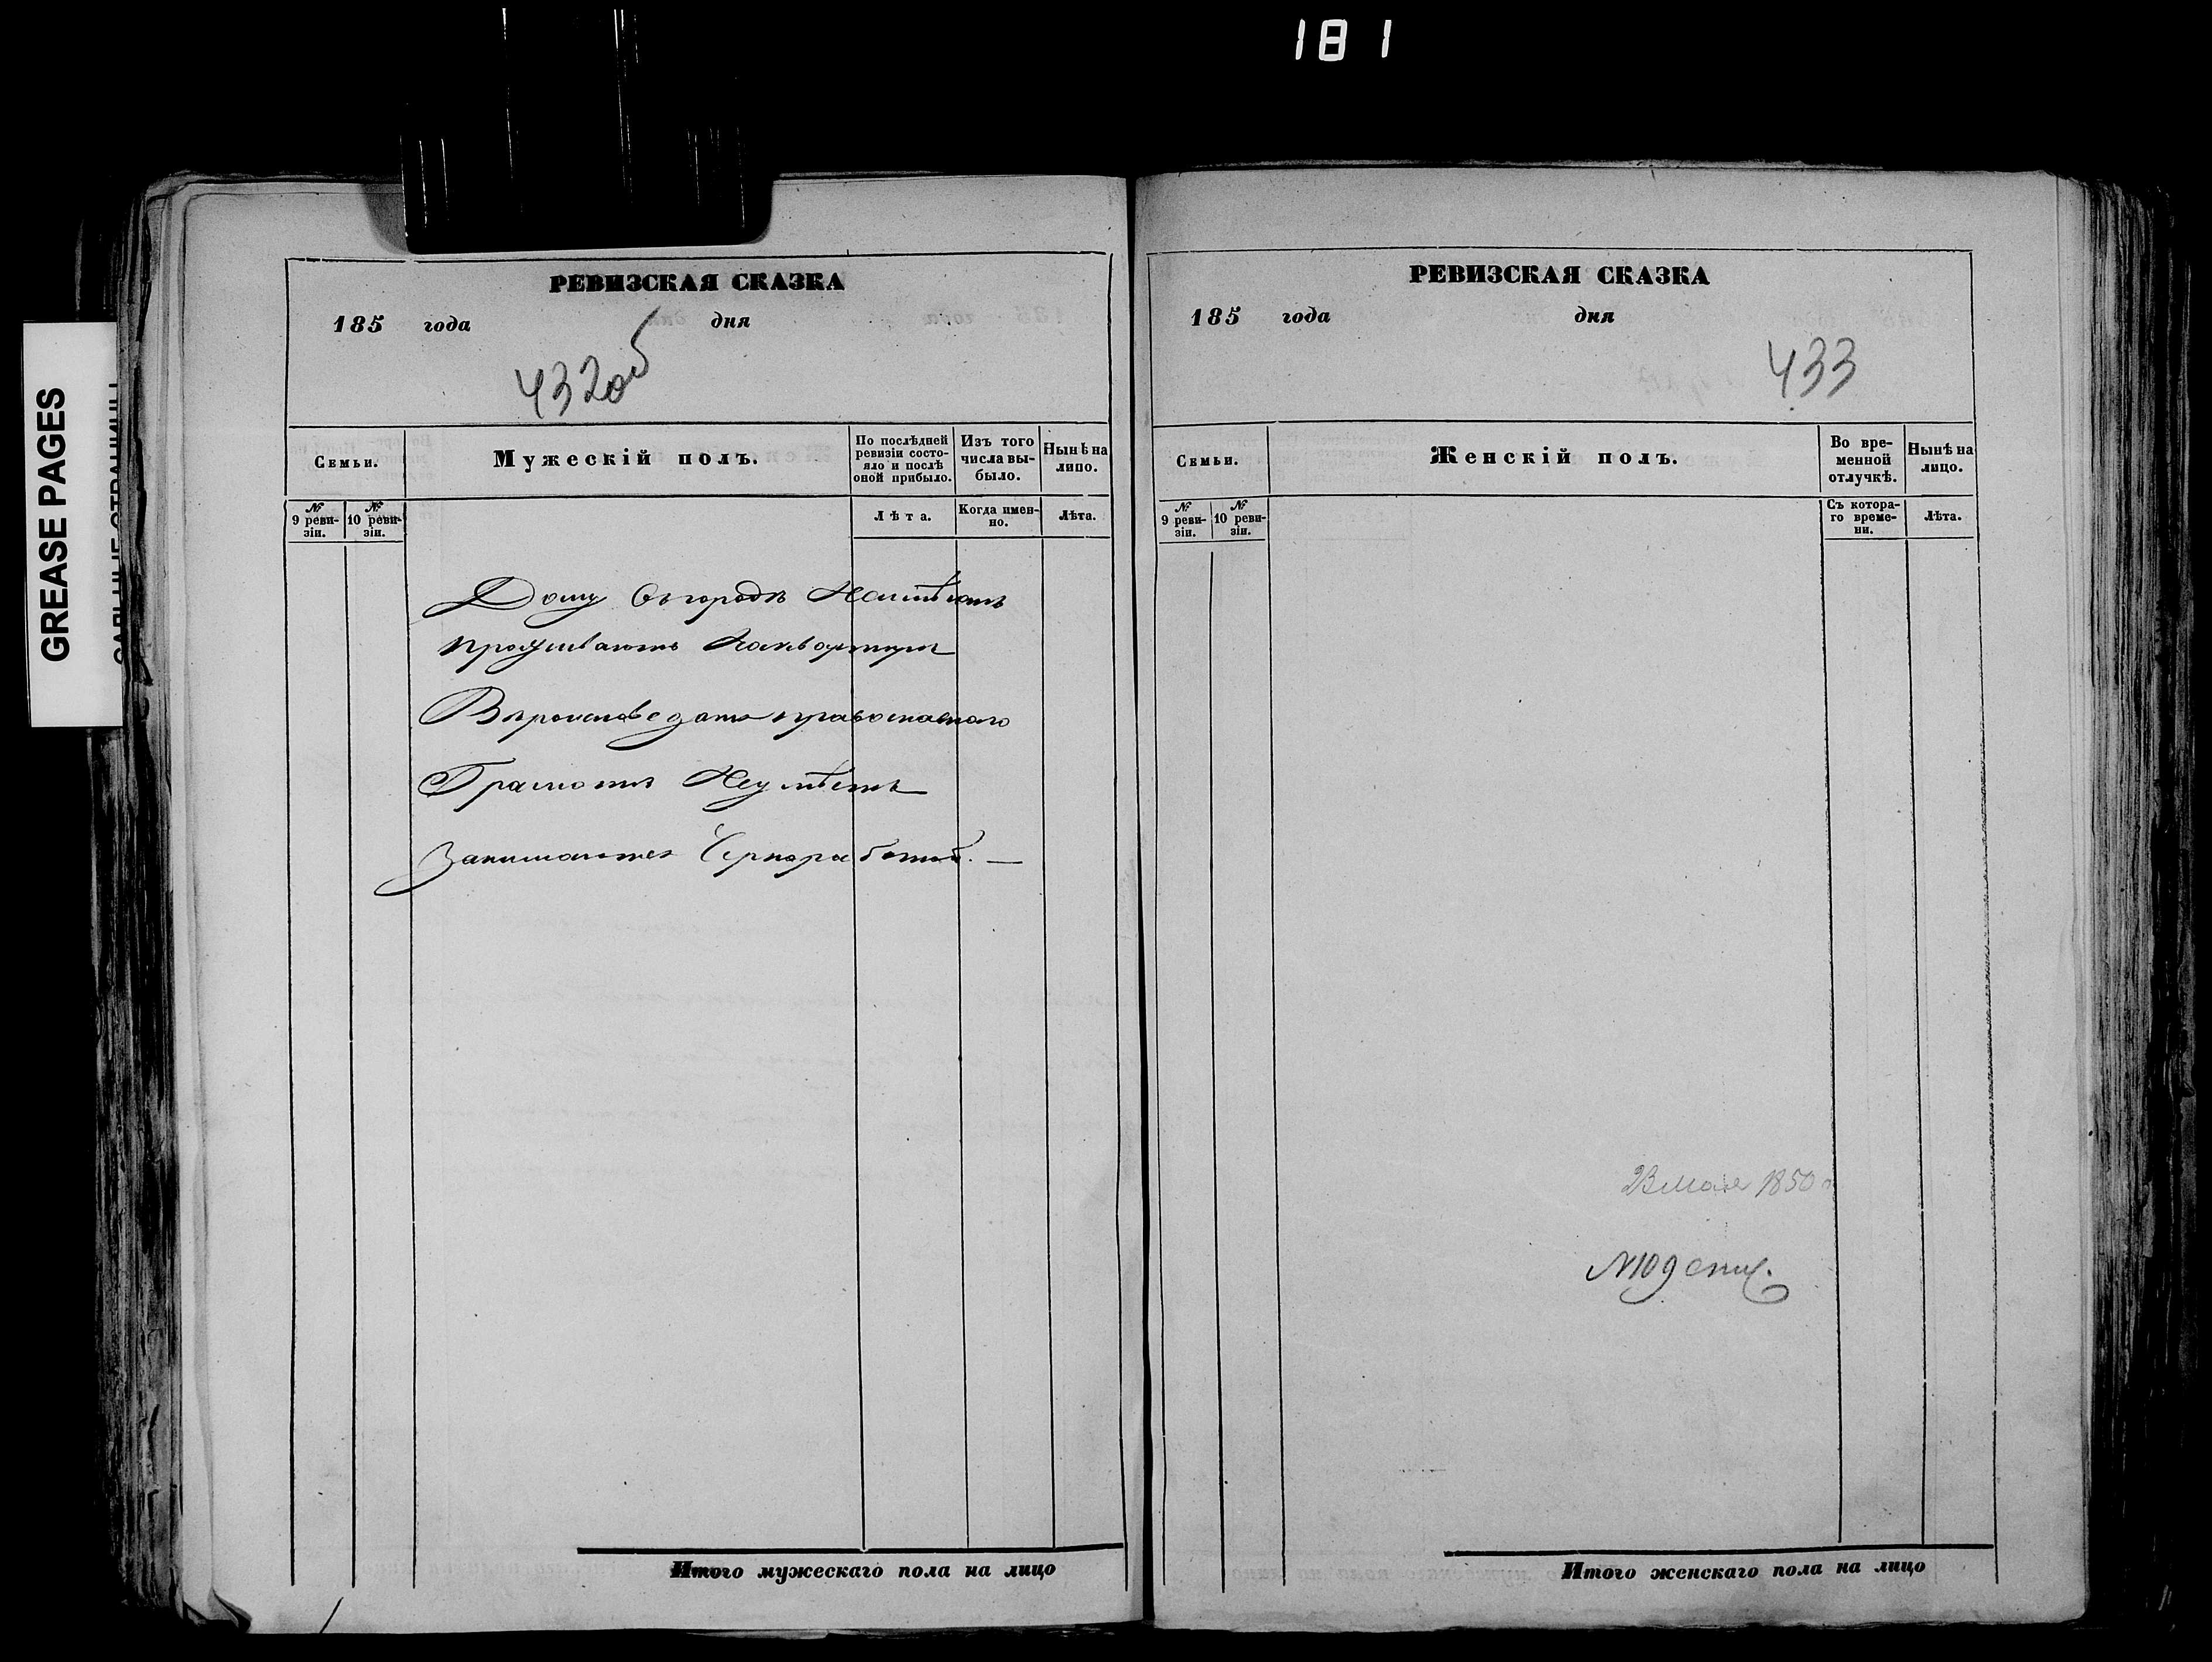 181
GREASE PAGES
РЕВИЗСКАЯ СКАЗКА
185 года дня
432об
Семьи.
Мужескій полъ.
По послѣдней ревизіи состояло и послѣ оной прибыло.
Изъ того числа выбыло.
Нынѣ на лицо.
№ 9 ревизіи.
№ 10 ревизіи.
Лѣта.
Когда именно.
Лѣта.
Дому въ городѣ Неимѣютъ
проживаютъ Наквартирѣ
Вѣроисповеданія православнаго
Грамотѣ Неумѣетъ
Занимается Чернработой. —
Итого мужескаго пола на лицо
РЕВИЗСКАЯ СКАЗКА
185 года дня
433
Семьи.
Женскій полъ.
Во временной отлучкѣ.
Нынѣ на лицо.
№ 9 ревизіи.
№ 10 ревизіи.
Съ котораго времени.
Лѣта.
23 мая 1850
Итого женскаго пола на лицо